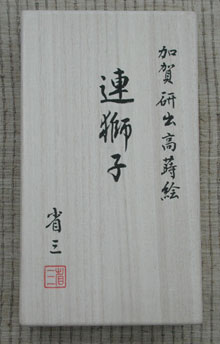 加賀研出高蒔絵
連獅子
省三